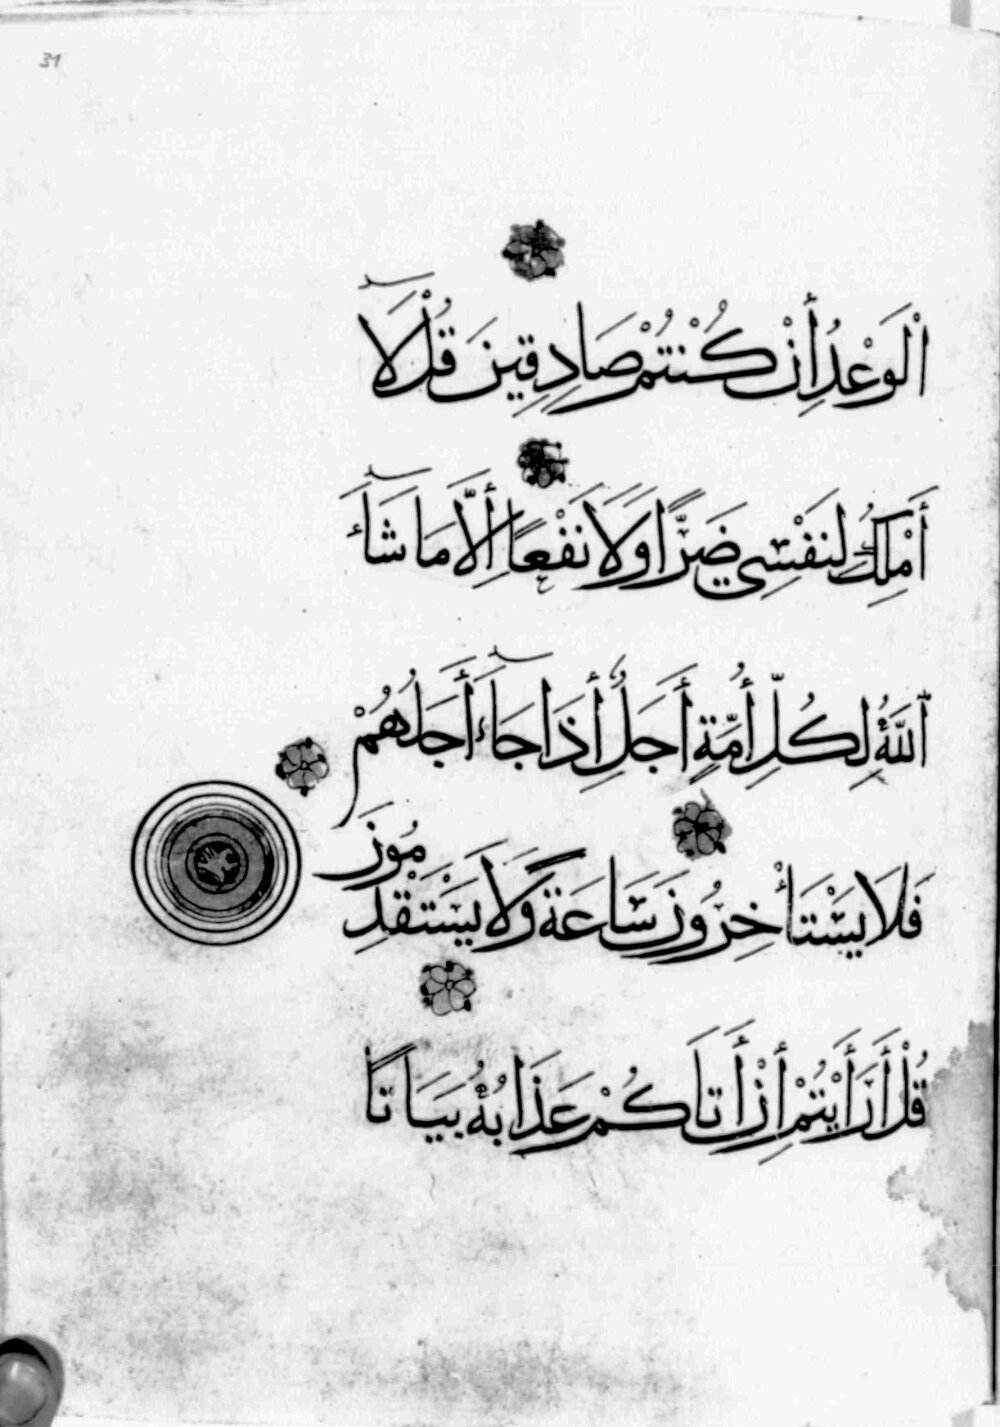 31
ٱلْوَعْدُ إِنْ كُنْتُمْ صَادِقِينَ قُلْ لَآ
أَمْلِكُ لِنَفْسِي ضَرًّا وَلَا نَفْعًا إِلَّا مَا شَآءَ
ٱللَّهُ لِكُلِّ أُمَّةٍ أَجَلٌ إِذَا جَآءَ أَجَلُهُمْ
فَلَا يَسْتَأْخِرُونَ سَاعَةً وَلَا يَسْتَقْدِمُونَ
قُلْ أَرَأَيْتُمْ إِنْ أَتَاكُمْ عَذَابُهُ بَيَاتًا